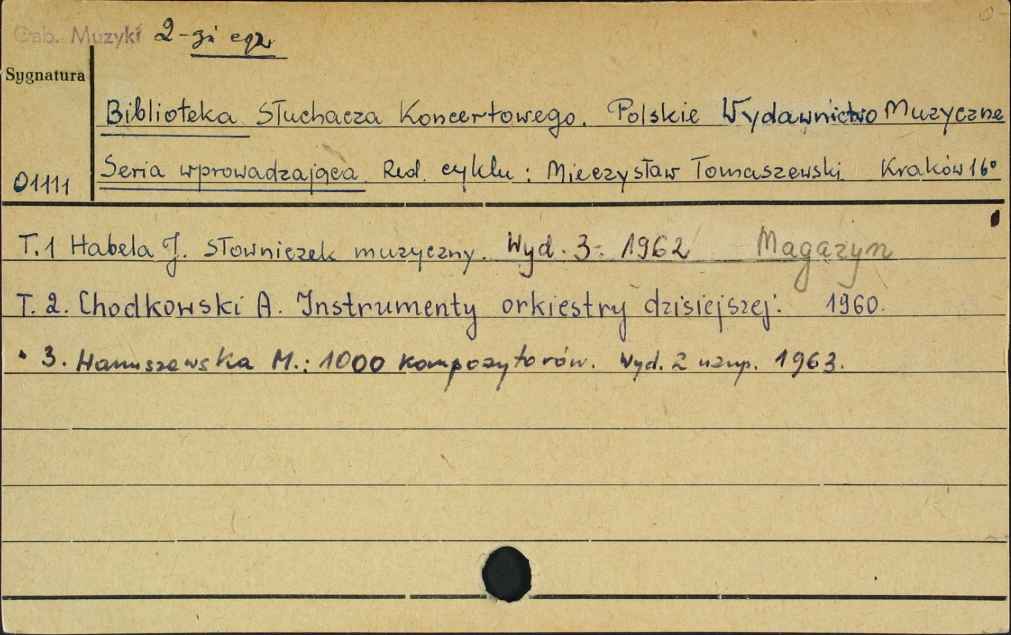 Gab. Muzyki 2-gi egz
Sygnatura
Biblioteka Słuchacza Koncertowego. Polskie Wydawnictwo Muzyczne
01111 Seria wprowadzająca Red. cyklu: Mieczysław Tomaszewski Kraków 16°
T.1 Habela J. Słowniczek muzyczny. Wyd. 3. 1962 Magazyn
T. 2. Chodkowski A. Instrumenty orkiestry dzisiejszej. 1960.
" 3. Hanuszewska M.: 1000 kompozytorów. Wyd. 2 uzup. 1963.